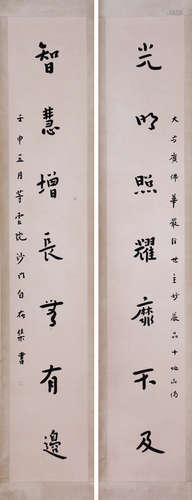 光明照耀靡不及
大方廣佛華嚴經世主妙嚴品十地品偈
智慧增長無有邊
壬申五月
沙門
集書